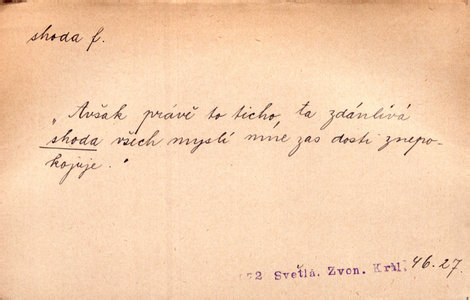 shoda f.
„Avšak právě to ticho, ta zdánlivá
shoda všech myslí mne zas dosti znepo-
kojuje.“
72 Světlá. Zvon. Král. 46.27.